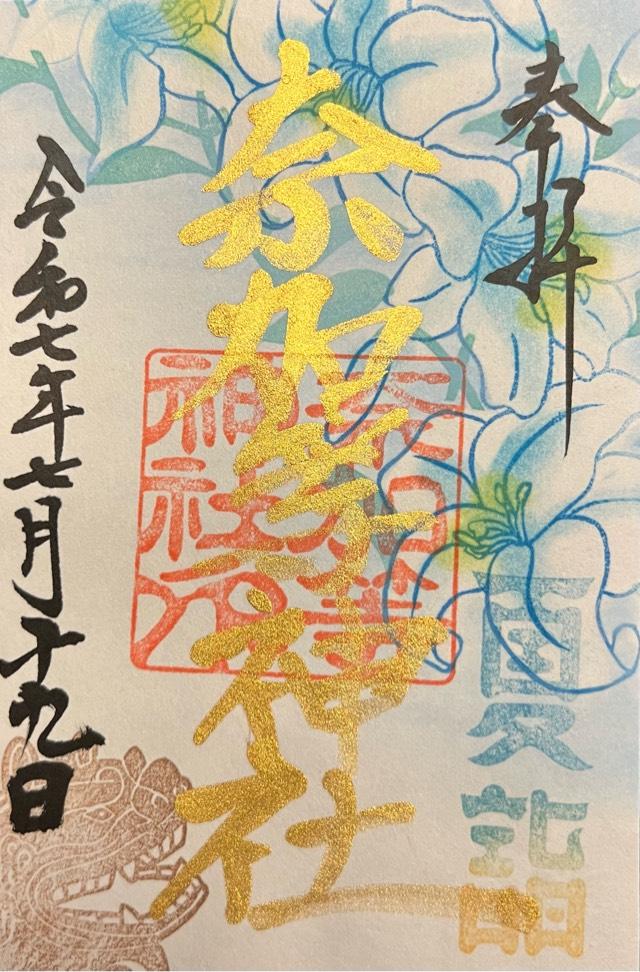 奉拝
夏詣
奈加等神社
奈加等
神社印
令和七年七月十九日